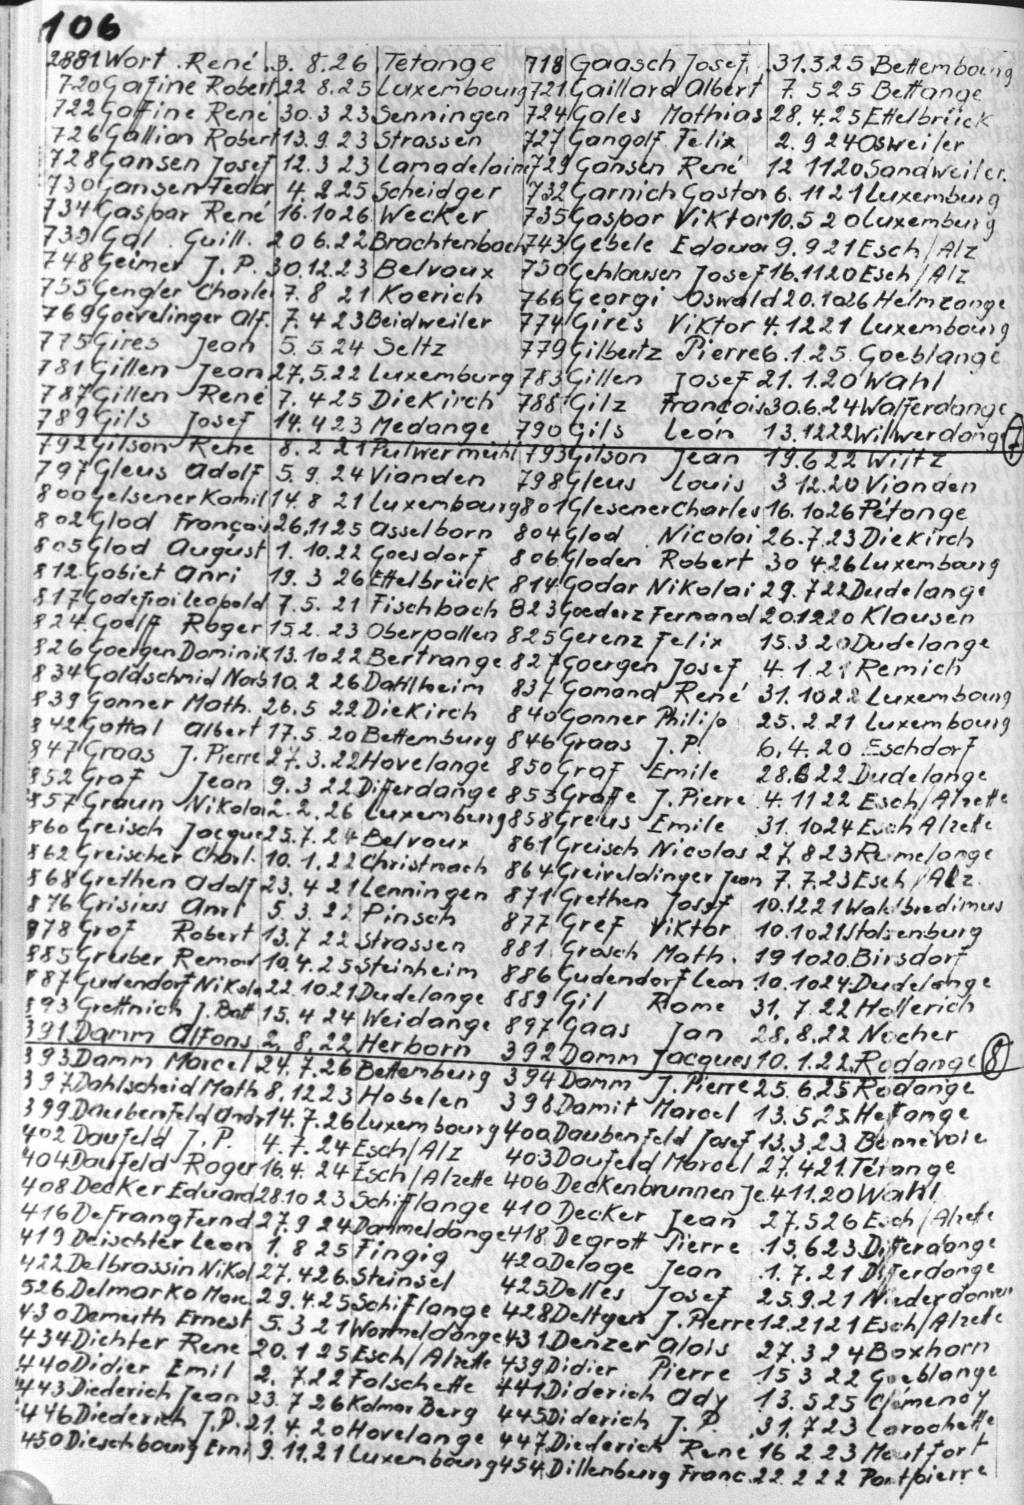 106
2881 Wort René 3. 8. 26 Tetange 718 Gaasch Josef 31. 3 25 Bettembourg
720 Gafine Robert 22 8. 25 Luxembourg 721 Gaillard Albert 7. 5 25 Bettange
722 Gaffine René 30. 3 23 Senningen 724 Gales Mathias 28. 4. 25 Ettelbrück
726 Gallion Robert 13. 9. 23 Strassen 727 Gangolf Felix 2. 9 24 Osweiler
728 Gansen Josef 12. 3 23 Lamadelaine 729 Gansen René 12 11 20 Sandweiler.
730 Gansen Fedor 4. 2. 25 Scheidger 732 Garnich Gaston 6. 11 21 Luxemburg
734 Gaspar René 16. 10 26 Wecker 735 Gaspar Viktor 10. 5 20 Luxemburg
739 Gal. Guill. 20 6. 22 Brachtenbach 743 Gebele Edouar 9. 9 21 Esch/Alz
748 Geimer J. P. 30. 12. 23 Belvaux 750 Gehlausen Josef 16. 11 20 Esch/Alz
755 Gengler Charle 7. 8 21 Koerich 766 Georgi Oswald 20. 10 26 Helmzange
769 Goevelinger Alf. 7. 4 23 Beidweiler 774 Gires Viktor 4. 12 21 Luxembourg
775 Gires Jean 5. 5. 24 Seltz 779 Gilbertz Pierre 6. 1. 25. Goeblange
781 Gillen Jean 27. 5. 22 Luxemburg 783 Gillen Josef 21. 1. 20 Wahl
787 Gillen René 7. 4 25 Diekirch 788 Gilz François 30. 6. 24 Walferdange
789 Gils Josef 14. 4 23 Medange 790 Gils León 13. 12 22 Wilwerdange 7
792 Gilson Rene 8. 2 21 Pulwermühl 793 Gilson Jean 19. 6 22 Wiltz
797 Gleus Adolf 5. 9. 24 Vianden 798 Gleus Louis 3 12. 20 Vianden
800 Gelsener Kamil 14. 8 21 Luxembourg 801 Glesener Charles 16. 10 26 Pétange
802 Glod François 26. 11 25 Asselborn 804 Glod Nicolai 26. 7. 23 Diekirch
805 Glod August 1. 10. 22 Goesdorf 806 Gloden Robert 30 4. 26 Luxembourg
812 Gobiet Anri 19. 3 26 Ettelbrück 814 Godar Nikolai 29. 7 22 Dudelange
817 Godefroi Leopold 7. 5. 21 Fischbach 823 Goederz Fernand 20 12 20 Klausen
824 Goelff Roger 15. 2. 23 Oberpallen 825 Gerenz Felix 15. 3. 20 Dudelange
826 Goergen Dominik 13. 10 22 Bertrange 827 Goergen Josef 4. 1. 21 Remich
834 Goldschmid Norb 10. 2 26 Dahlheim 837 Gomand René 31. 10 22 Luxembourg
839 Gonner Math. 26. 5 22 Diekirch 840 Gonner Philip 25. 2. 21 Luxembourg
842 Gottal Albert 17. 5. 20 Bettemburg 846 Graas J. P. 6. 4. 20 Eschdorf
847 Graas J. Pierre 27. 3. 22 Hovelange 850 Graf Emile 28. 6 22 Dudelange
852 Graf Jean 9. 3 22 Differdange 853 Graffe J. Pierre 4. 11 22 Esch/Alzette
857 Graun Nikolai 2. 2. 26 Luxemburg 858 Greus Emile 31. 10 24 Esch Alzette
860 Greisch Jacque 25. 7. 24 Belvaux 861 Greisch Nicolas 27. 8 23 Remelange
862 Greischer Charl. 10. 1. 22 Christnach 864 Greiveldinger Jean 7. 7. 23 Esch/Alz.
868 Grethen Adolf 23. 4 21 Lenningen 871 Grethen Josef 10. 12 21 Wahlbredimus
876 Grisius Anri 5. 3. 22 Pinsch 877 Gref Viktor 10. 10 21 Stolzenburg
878 Grof Robert 13. 7 22 Strassen 881 Grosch Math. 19 10 20. Birsdorf
885 Gruber Remon 10. 4. 25 Steinheim 886 Gudendorf Leon 10. 10 24 Dudelange
887 Gudendorf Nikola 22. 10. 21 Dudelange 889 Gil Rome 31. 7. 22 Hollerich
893 Grettnich J. Bat 15. 4 24 Weidange 897 Gaas Jan 28. 8. 22 Nocher
391 Damm Alfons 2. 8. 22 Herborn 392 Damm Jacques 10. 1. 22. Rodange 8
393 Damm Marcel 24. 7. 26 Bettemburg 394 Damm J. Pierre 25. 6. 25 Rodange
397 Dahlscheid Math 8. 12 23 Hobelen 398 Damit Marcel 13. 5 25 Hefange
399 Daubenfeld Andr 14. 7. 26 Luxembourg 400 Daubenfeld Josef 13. 3. 23 Bonnevoie
402 Daufeld J. P. 4. 7. 24 Esch/Alz 403 Daufeld Marcel 27. 4 21 Tétange
404 Daufeld Roger 16. 4. 24 Esch/Alzette 406 Deckenbrunnen Je 4 11. 20 Wahl
408 Decker Eduard 28. 10 23 Schifflange 410 Decker Jean 27. 5 26 Esch/Alzette
416 De Frang Fernd 27. 9 24 Dommeldange 418 Degrott Pierre 13. 6 23 Differdange
419 Deischter Leon 1. 8 25 Fingig 420 Delage Jean 1. 7. 21 Differdange
422 Delbrassin Nikol 27. 4 26 Steinsel 425 Delles Josef 25. 9. 21 Niederdonven
526 Delmarko Marc 29. 4. 25 Schiflange 428 Deltgen J. Pierre 12. 21 21 Esch/Alzette
430 Demuth Ernest 5. 3 21 Wormeldange 431 Denzer Alois 27. 3 24 Boxhorn
434 Dichter René 20. 1 25 Esch/Alzette 439 Didier Pierre 15 3 22 Goeblange
440 Didier Emil 2. 7. 22 Folschette 441 Diderich Ady 13. 5 25 Clémency
443 Diederich Jean 23. 7 26 Kolmar Berg 445 Diderich J. P. 31. 7 23 Larochette
446 Diederich J. P. 21. 4. 20 Hovelange 447 Diederich René 16 2. 23 Moutfort
450 Dieschbourg Erni 9. 11. 21 Luxembourg 454 Dillenburg Franc. 22. 2 22 Pontpierre